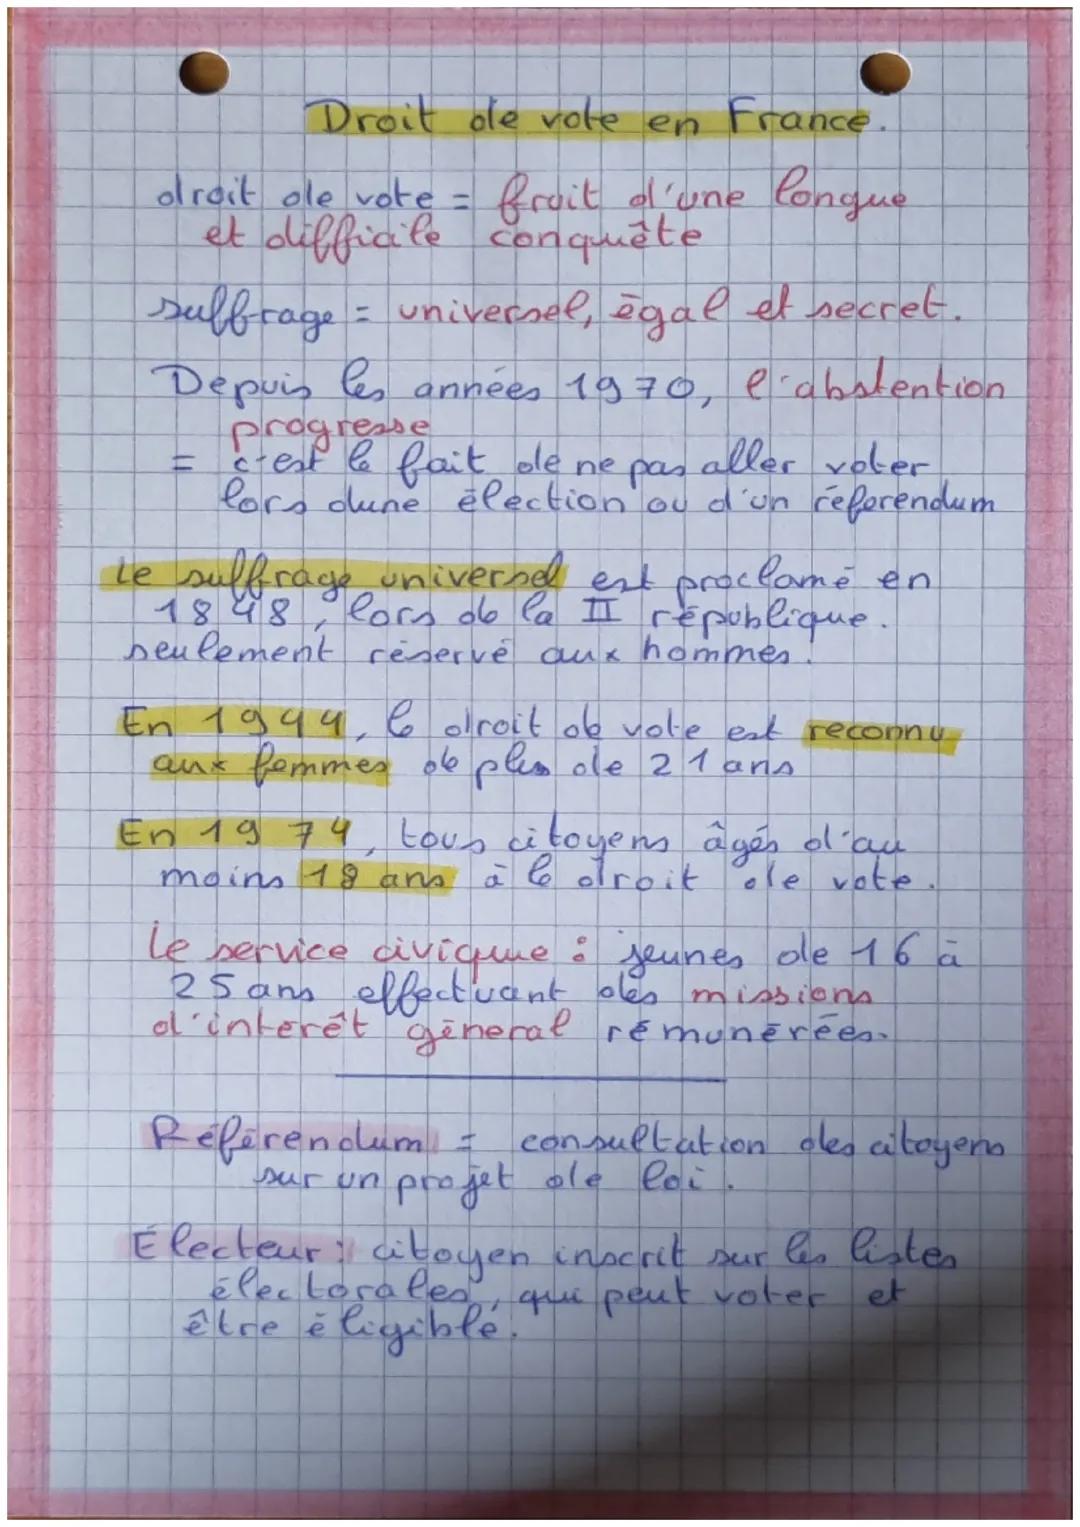 Droit de vote en France.
droit de vote = fruit d'une longue
et difficile conquête
suffrage = universel, égal et secret.
Depuis les années 1970, l'abstention
progresse
= c'est le fait de ne pas aller voter
lors dune élection ou d'un référendum
Le suffrage universel est proclamé en
1848, lors de la II république.
seulement réservé aux hommes.
En 1944, le droit de vote est reconnu
aux femmes de plus de 21 ans
En 1974, tous citoyens âgés d'au
moins 18 ans à le droit de vote.
Le service civique : jeunes de 16 à
25 ans effectuant des missions
d'interêt géneral rémunérées.
Référendum = consultation des citoyens
sur un projet de loi.
Électeur : citoyen inscrit sur les listes
électorales, qui peut voter et
être éligible.